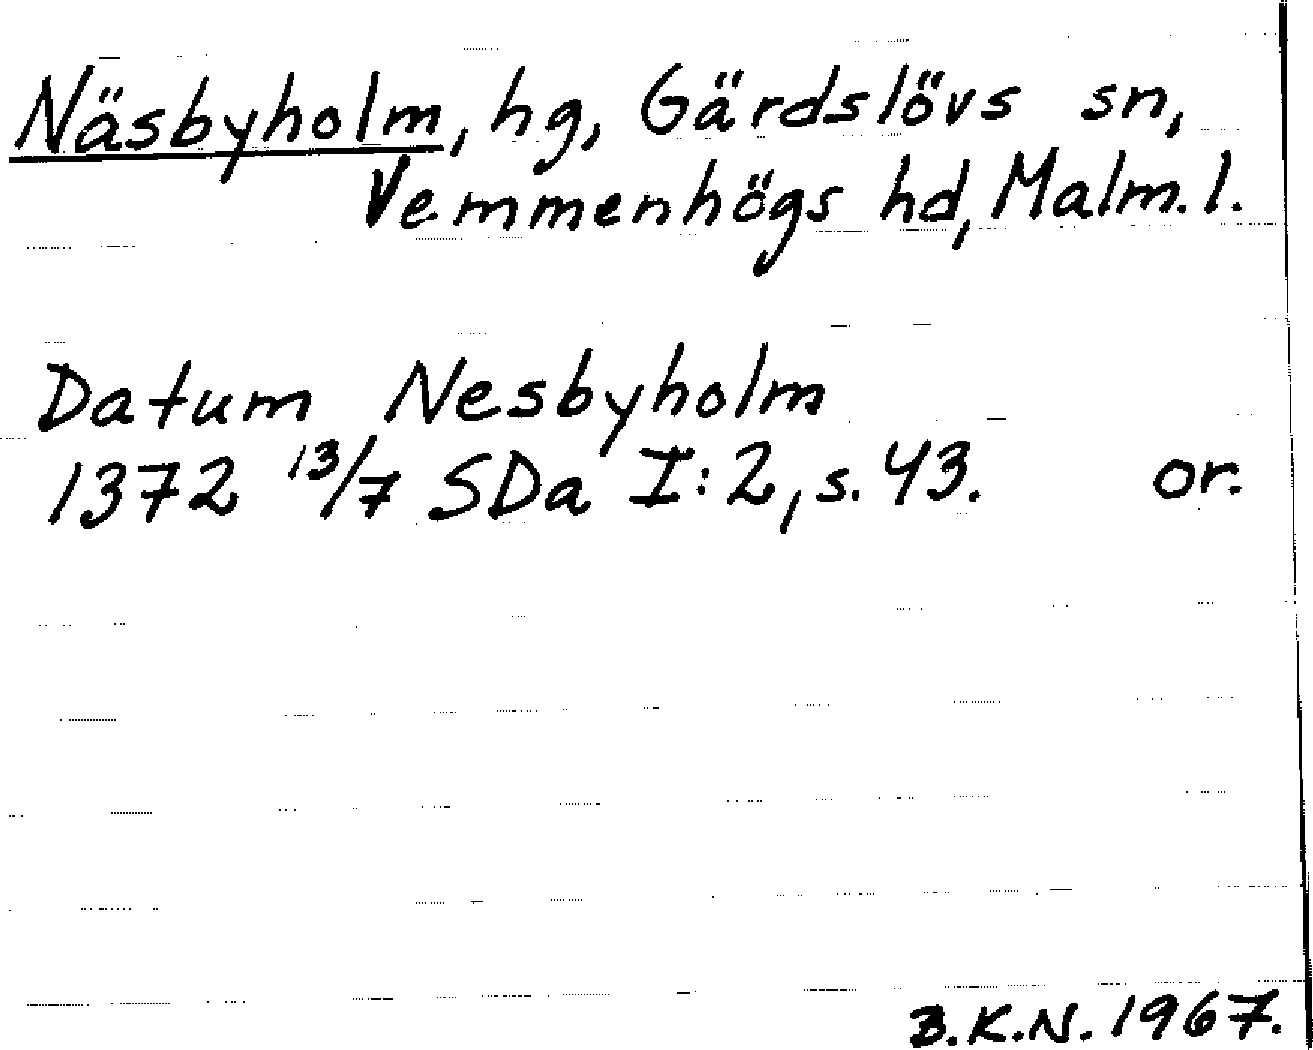 Näsbyholm, hg, Gärdslövs sn,
Vemmenhögs hd, Malm. l.
Datum Nesbyholm
1372 13/7 SDa I:2, s. 43. or.
B.K.N. 1967.